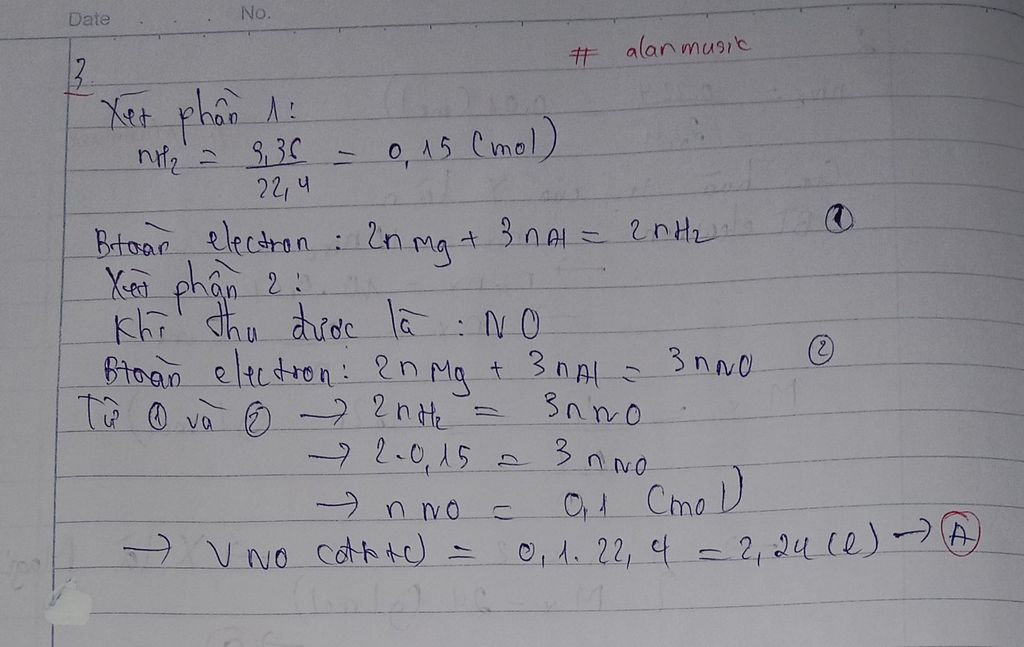 Date No.
# alanmusic
3.
Xét phần 1:
nH₂ = 3,36 / 22,4 = 0,15 (mol)
Btoàn electron : 2n Mg + 3 n Al = 2 n H₂ ①
Xét phần 2 :
Khí thu được là : NO
Btoàn electron : 2n Mg + 3 n Al = 3 n NO ②
Từ ① và ② → 2 n H₂ = 3 n NO
→ 2.0,15 = 3 n NO
→ n NO = 0,1 (mol)
→ V NO (đktc) = 0,1. 22,4 = 2,24 (l) → A